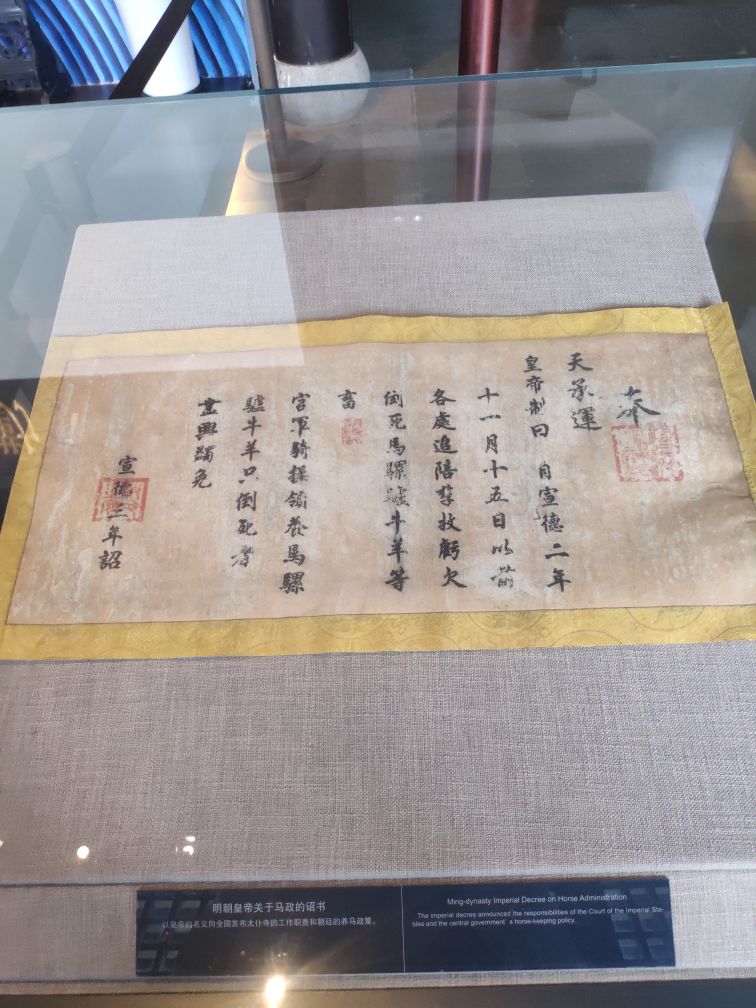 奉
天承運
皇帝制曰 自宣德二年
十一月十五日以前
各處追陪孳牧虧欠
倒死馬騾驢牛羊等
畜
官軍騎操領養馬騾
驢牛羊只倒死者
興蠲免
宣德三年詔
明朝皇帝关于马政的诏书
以皇帝的名义向全国发布太仆寺的工作职责和朝廷的养马政策。
Ming-dynasty Imperial Decree on Horse Administration
The imperial decree announced the responsibilities of the Court of the Imperial Sta-
bles and the central government's horse-keeping policy.